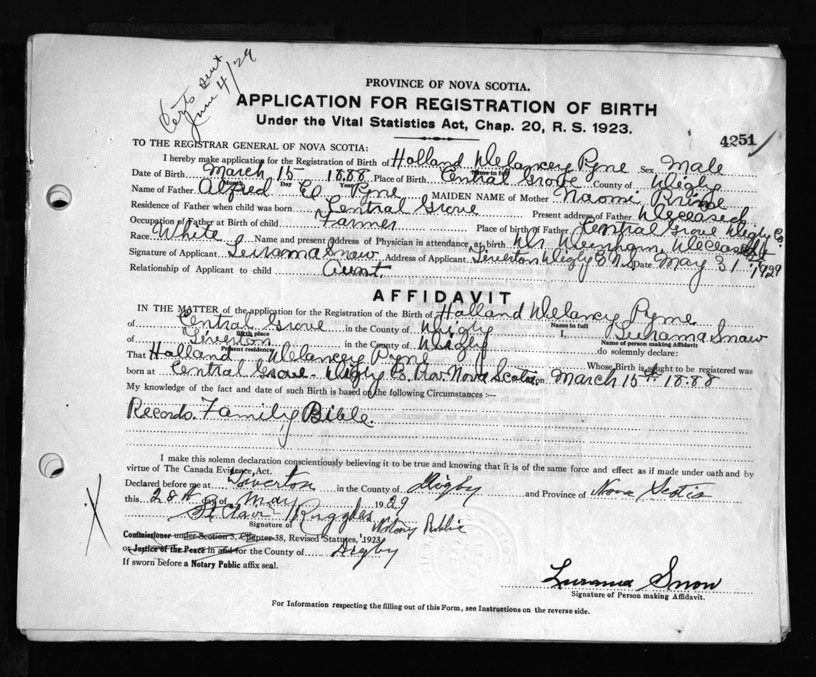 Certs sent
June 4/29
PROVINCE OF NOVA SCOTIA.
APPLICATION FOR REGISTRATION OF BIRTH
Under the Vital Statistics Act, Chap. 20, R. S. 1923.
4251
TO THE REGISTRAR GENERAL OF NOVA SCOTIA:
I hereby make application for the Registration of Birth of Holland Delancey Pyne Sex Male
Name in full
Date of Birth March 15 1888 Place of Birth Central Grove County of Digby
Month Day Year
Name of Father Alfred E Pyne MAIDEN NAME of Mother Naomi Prime
Residence of Father when child was born Central Grove Present address of Father Deceased
Occupation of Father at Birth of child Farmer Place of birth of Father Central Grove Digby Co.
Race White Name and present address of Physician in attendance at birth Dr Deceased
Signature of Applicant Lurama Snow Address of Applicant Tiverton Digby Co. N.S. Date May 31 1929
Relationship of Applicant to child Aunt.
AFFIDAVIT
IN THE MATTER of the application for the Registration of the Birth of Holland Delancey Pyne
Name in full
of Central Grove in the County of Digby I, Lurama Snow
Birth place Name of person making Affidavit
of Tiverton in the County of Digby do solemnly declare:
Present residence
That Holland Delancey Pyne Whose Birth is sought to be registered was
born at Central Grove Digby Co. Prov. Nova Scotia on March 15th 1888
My knowledge of the fact and date of such Birth is based on the following Circumstances :—
Records. Family Bible.
I make this solemn declaration conscientiously believing it to be true and knowing that it is of the same force and effect as if made under oath and by
virtue of The Canada Evidence Act.
Declared before me at Tiverton in the County of Digby and Province of Nova Scotia
this 28th day of May 1929
St Clair Ruggles
Signature of Notary Public
Commissioner under Section 3, Chapter 38, Revised Statutes, 1923
or Justice of the Peace in and for the County of Digby
If sworn before a Notary Public affix seal.
Lurama Snow
Signature of Person making Affidavit.
For Information respecting the filling out of this Form, see Instructions on the reverse side.